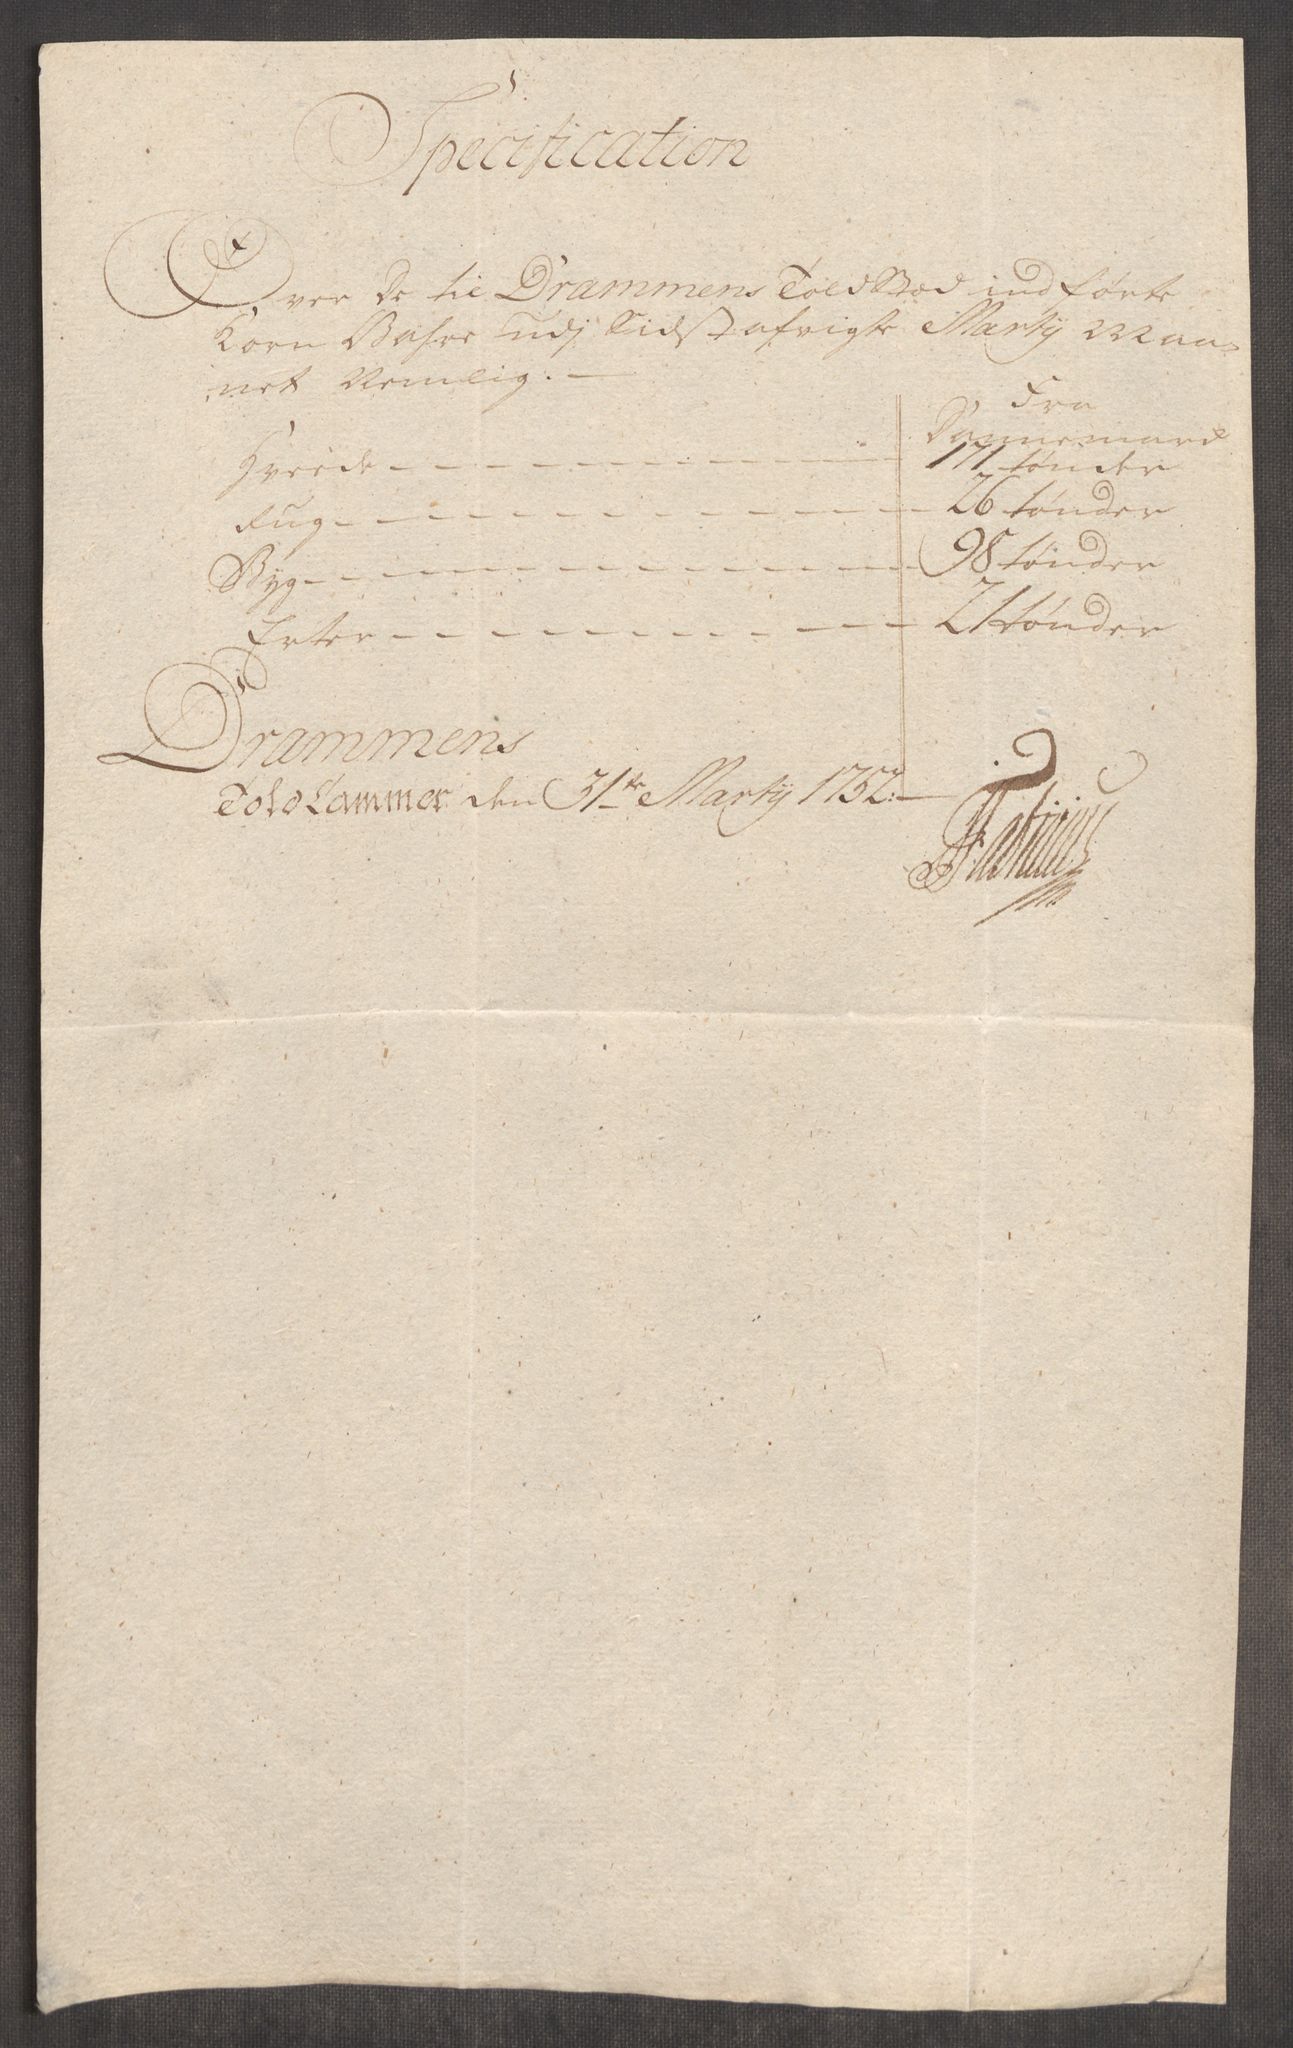 Specification
Over de til Drammens Told Bod indførte
Korn Vahre udj Sidst afvigte Martij Maa-
net Nemlig. —
Fra
Dannemarck
Hvede - - - 171 tønder
Rug - - - 26 tønder
Byg - - - 98 tønder
Erter - - - 21 tønder
Drammens
Told Cammer den 31te Martij 1752. —